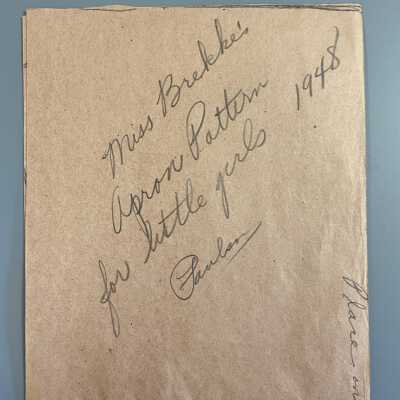 Miss Brekke's
Apron Pattern
for little girls
1948
Paulson
Place on